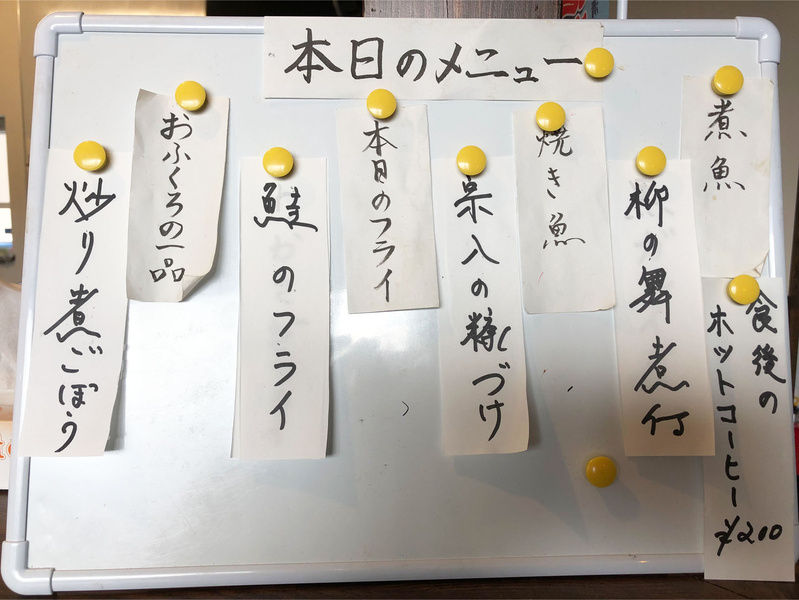 本日のメニュー
煮魚
柳の舞煮付
焼き魚
宗八の糠づけ
本日のフライ
鮭のフライ
おふくろの一品
炒り煮ごぼう
食後の
ホットコーヒー ¥200